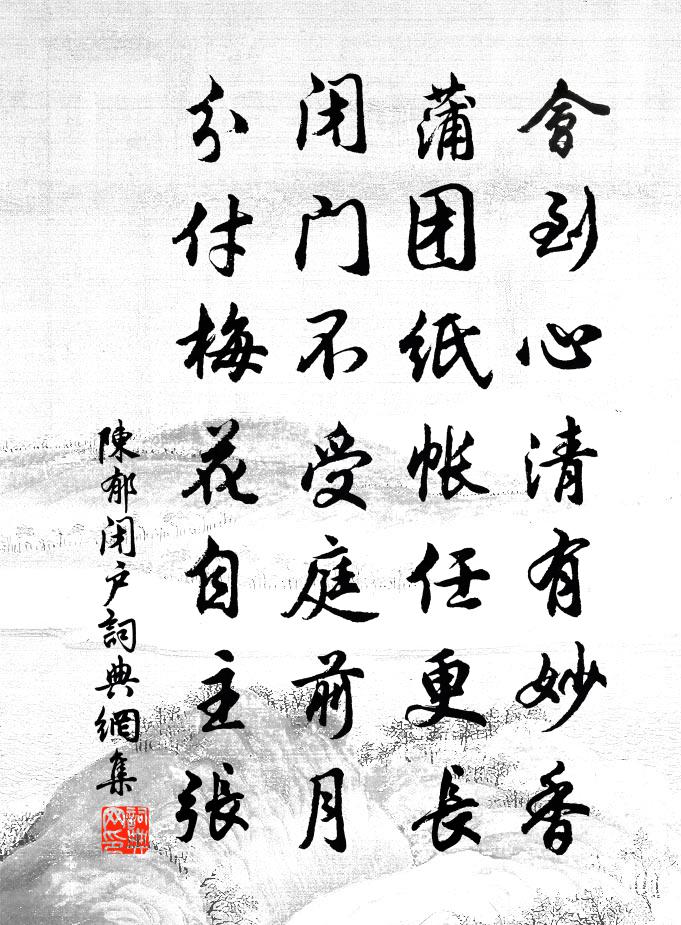 會到心清有妙香
蒲团紙帐任更長
闭门不受庭前月
分付梅花自主張
陳郁闭户詞典網集
詞典网印